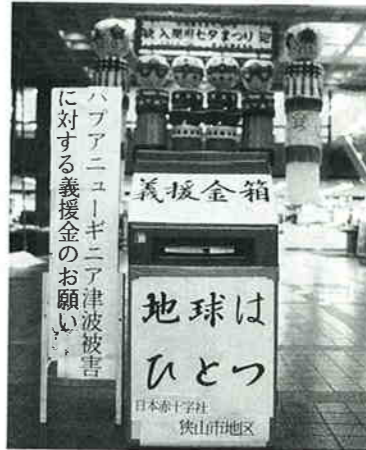 入間川七夕まつり
パプアニューギニア津波被害
に対する義援金のお願い
義援金箱
地球は
ひとつ
日本赤十字社
狭山市地区